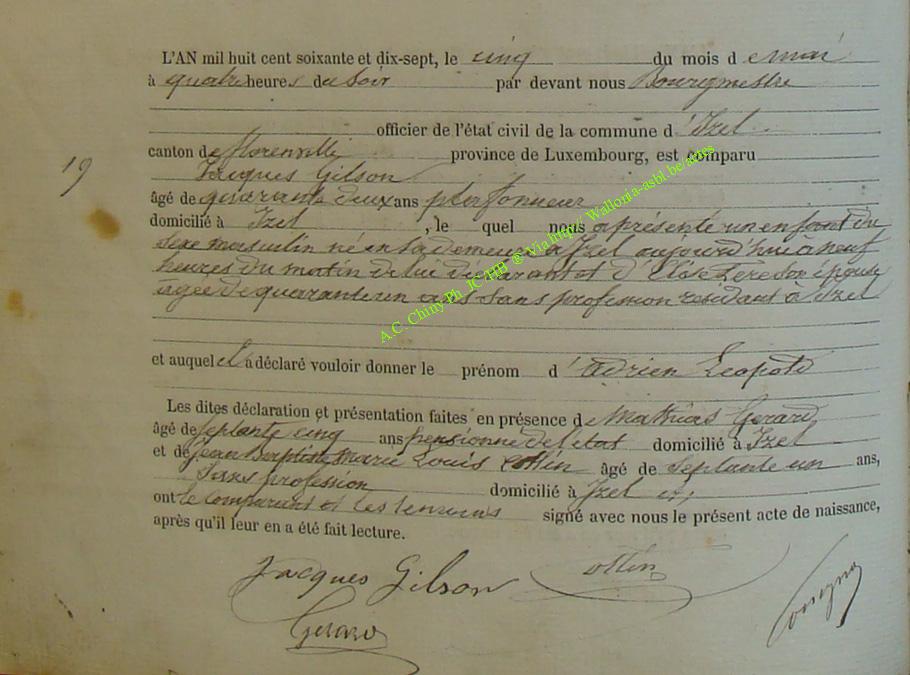 L'AN mil huit cent soixante et dix-sept, le cinq du mois d e mai
à quatre heures du Soir par devant nous Bourgmestre
officier de l'état civil de la commune d'Izel
canton de florenville province de Luxembourg, est comparu
19
Jacques Gilson
âgé de quarante deux ans plafonneur
domicilié à Izel, le quel nous a présenté un enfant du
sexe masculin né en sa demeure à Izel aujourd'hui a neuf
heures du matin de lui déclarant et d' épouse
agée de quarante un ans sans profession residant à Izel
et auquel il a déclaré vouloir donner le prénom d'adrien Leopold
Les dites déclaration et présentation faites en présence de Mathias Gerard
âgé de septante cinq ans pensionné de l'etat domicilié à Izel
et de Jean Baptiste Marie Louis Ottin âgé de septante un ans,
Sans profession domicilié à Izel et
ont le comparant et les temoins signé avec nous le présent acte de naissance,
après qu'il leur en a été fait lecture.
Jacques Gilson Ottin
Gerard
A.C. Chiny Ph. JC HH @ Via http// Wallonia-asbl.be/actes